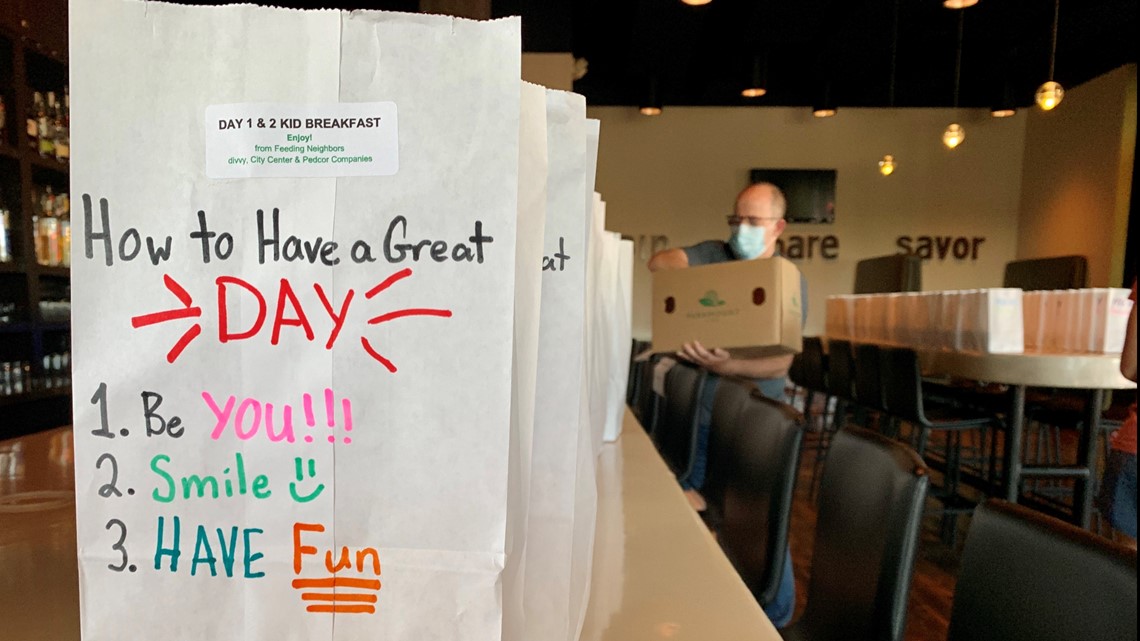 DAY 1 & 2 KID BREAKFAST
Enjoy!
from Feeding Neighbors
divvy, City Center & Pedcor Companies
How to Have a Great
DAY
1. Be YOU!!!
2. Smile
3. HAVE Fun
at
savor
PARAMOUNT